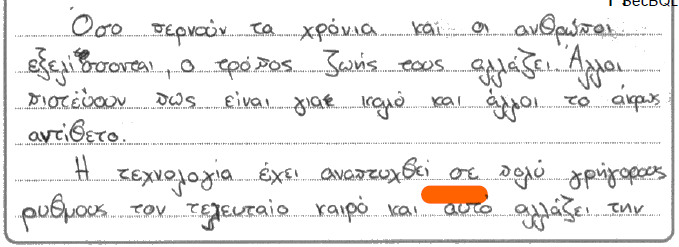 Όσο περνούν τα χρόνια και οι ανθρώποι
εξελίσσονται, ο τρόπος ζωής τους αλλάζει. Άλλοι
πιστεύουν πως είναι για καλό και άλλοι το άκρως
αντίθετο.
Η τεχνολογία έχει αναπτυχθεί σε πολύ γρήγορους
ρυθμους τον τελευταίο καιρό και αυτό αλλάζει την